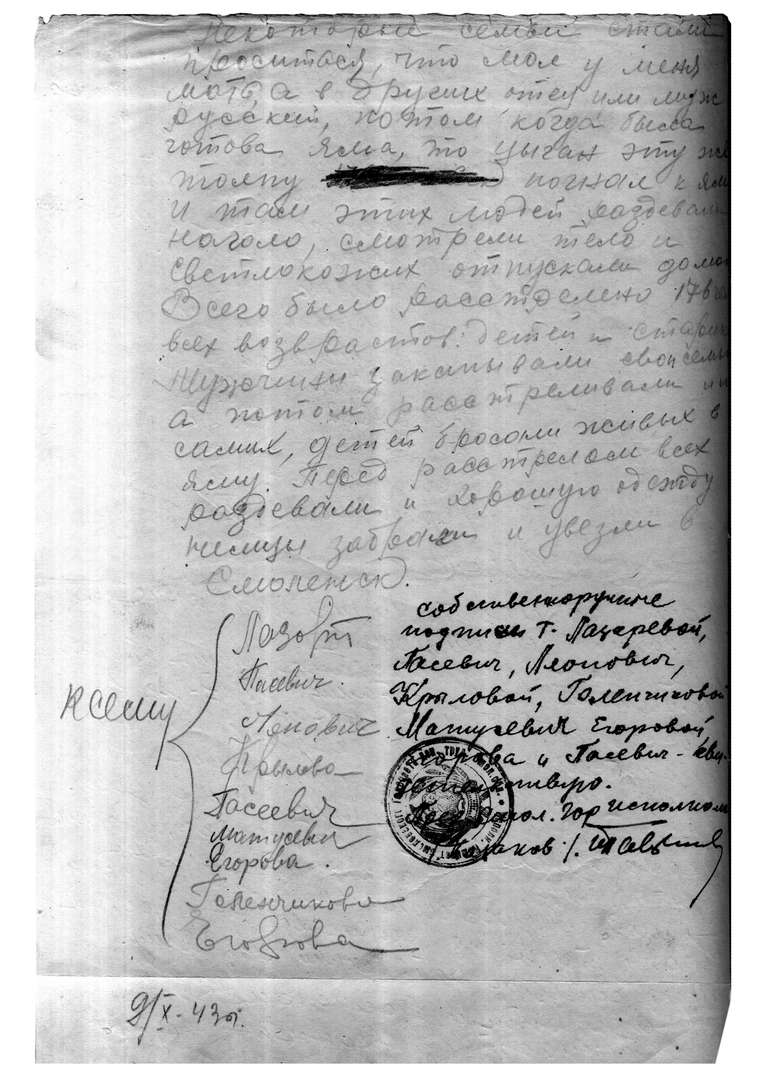 Некоторые семьи стали
проситься, что мол у меня
мать, а в других отец или муж
русский, потом когда была
готова яма, то цыган эту же
толпу погнал к яме
и там этих людей раздевали
наголо, смотрели тело и
светлокожих отпускали домой
Всего было расстрелено 176 чел
всех возврастов: детей и стариков
Мужчины закапывали свои семьи
а потом расстреливали и их
самих, детей бросали живых в
яму. Перед расстрелом всех
раздевали и хорошую одежду
немцы забрали и увезли в
Смоленск.
К сему
Лазарт
Пасевич.
Ленович
Крылова
Пасеевич
Матусевич
Егорова.
Голенчикова
Егорова
собственноручные
подписи т. Лазаревой,
Пасевич, Леонович,
Крыловой, Голенчиковой
Матусевич Егоровой,
Егорова и Пасевич - сви-
детельствую.
Пред. Смол. Горисполкома
9/X-43 г.